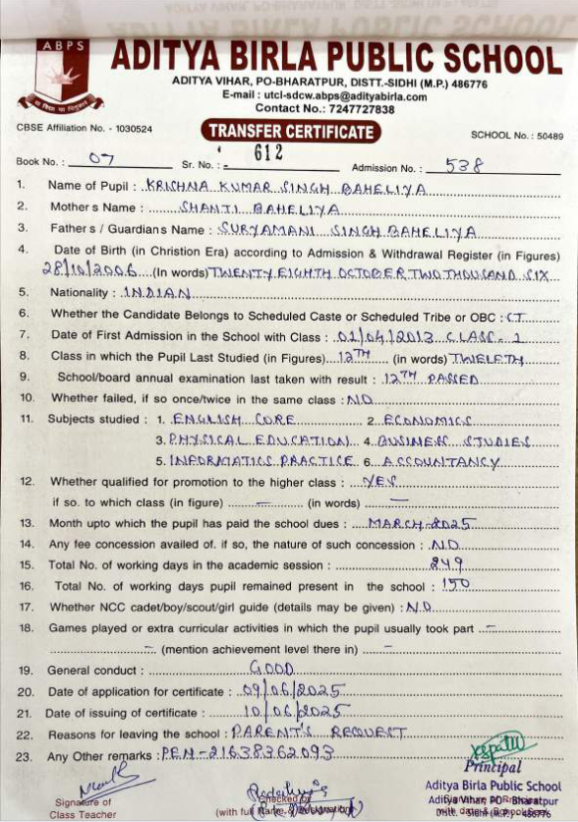 ABPS
ADITYA BIRLA PUBLIC SCHOOL
ADITYA VIHAR, PO-BHARATPUR, DISTT.-SIDHI (M.P.) 486776
E-mail : utcl-sdcw.abps@adityabirla.com
Contact No.: 7247727838
CBSE Affiliation No. - 1030524
TRANSFER CERTIFICATE
SCHOOL No. : 50489
Book No. : 07 Sr. No. : 612 Admission No. : 538
1. Name of Pupil : KRISHNA KUMAR SINGH BAHELIYA
2. Mother s Name : SHANTI BAHELIYA
3. Father s / Guardian s Name : SURYAMANI SINGH BAHELIYA
4. Date of Birth (in Christion Era) according to Admission & Withdrawal Register (in Figures)
28/10/2006 (In words) TWENTY EIGHTH OCTOBER TWO THOUSAND SIX
5. Nationality : INDIAN
6. Whether the Candidate Belongs to Scheduled Caste or Scheduled Tribe or OBC : ST
7. Date of First Admission in the School with Class : 01/04/2013 CLASS - 1
8. Class in which the Pupil Last Studied (in Figures) 12TH (in words) TWELETH
9. School/board annual examination last taken with result : 12TH PASSED
10. Whether failed, if so once/twice in the same class : NO
11. Subjects studied : 1. ENGLISH CORE 2. ECONOMICS
3. PHYSICAL EDUCATION 4. BUSINESS STUDIES
5. INFORMATICS PRACTICE 6. ACCOUNTANCY
12. Whether qualified for promotion to the higher class : YES
if so. to which class (in figure) — (in words) —
13. Month upto which the pupil has paid the school dues : MARCH-2025
14. Any fee concession availed of. if so, the nature of such concession : NO
15. Total No. of working days in the academic session : 249
16. Total No. of working days pupil remained present in the school : 150
17. Whether NCC cadet/boy/scout/girl guide (details may be given) : NO
18. Games played or extra curricular activities in which the pupil usually took part —
— (mention achievement level there in) —
19. General conduct : GOOD
20. Date of application for certificate : 09/06/2025
21. Date of issuing of certificate : 10/06/2025
22. Reasons for leaving the school : PARENT'S REQUEST
23. Any Other remarks : PEN-21638362093
Principal
Aditya Birla Public School
Signature of
Class Teacher
Checked by
(with full name & designation)
Aditya Vihar, PO-Bharatpur
Distt. - Sidhi (M.P.) - 486776